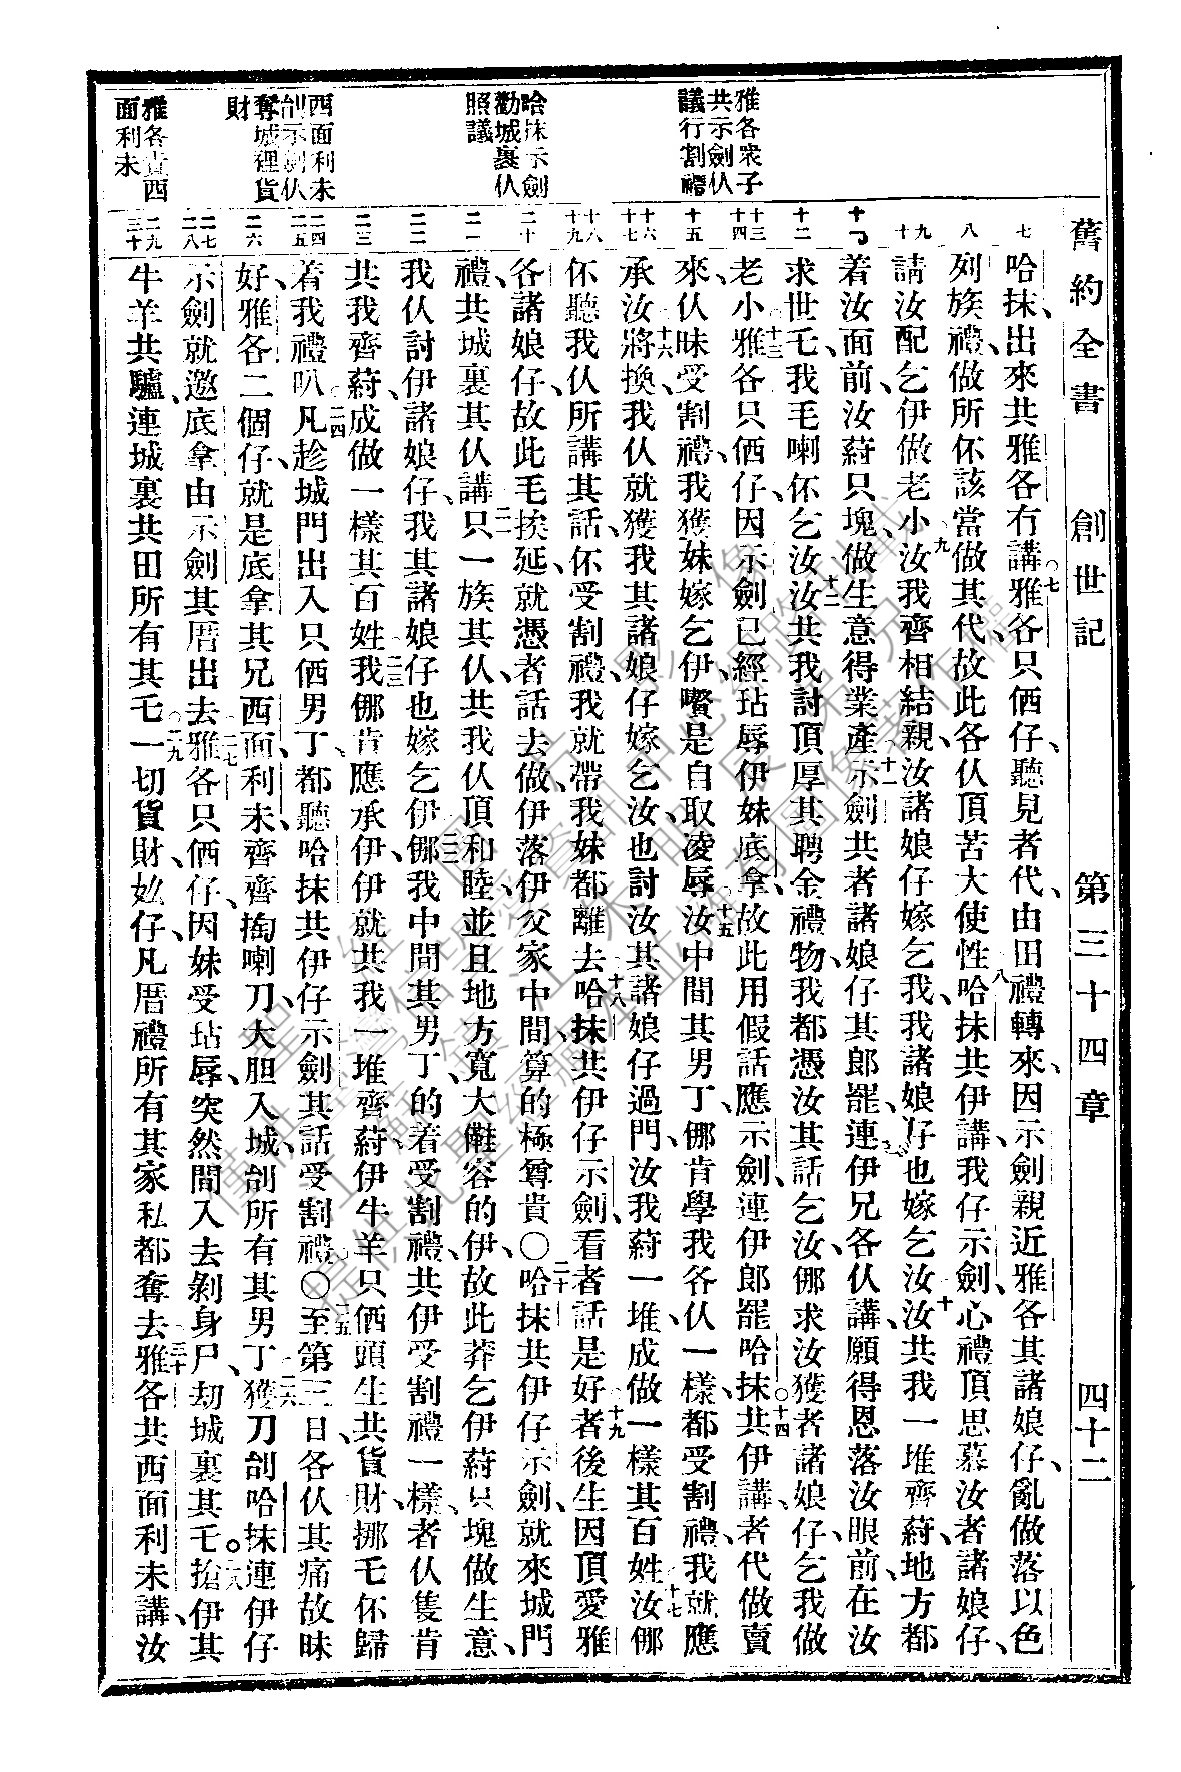 舊約全書 創世記 第三十四章 四十二
雅各衆子
共示劍仈
議行割禮
哈抹示劍
勸城裏仈
照議
西面利未
刣示劍仈
奪城裡貨
財
雅各責西
面利未
七
八
九
十
十一
十二
十三
十四
十五
十六
十七
十八
十九
二十
二一
二二
二三
二四
二五
二六
二七
二八
二九
三十
哈抹、出來共雅各冇講。○七雅各只㑚仔、聽見者代、由田禮轉來、因示劍親近雅各其諸娘仔、亂做落以色
列族禮、做所伓該當做其代、故此各仈頂苦大使性。八哈抹共伊講、我仔示劍心禮頂思慕汝者諸娘仔、
請汝配乞伊做老小。九汝我齊相結親、汝諸娘仔嫁乞我、我諸娘仔也嫁乞汝。十汝共我一堆齊蒔、地方都
着汝面前、汝蒔只塊、做生意得業產。十一示劍共者諸娘仔其郎罷、連伊兄各仈講、願得恩落汝眼前、在汝
求世乇、我毛喇伓乞汝。十二汝共我討頂厚其聘金禮物、我都憑汝其話乞汝、㑚求汝獲者諸娘仔、乞我做
老小。十三雅各只㑚仔、因示劍已經玷辱伊妹底拿、故此用假話應示劍、連伊郎罷哈抹。○十四共伊講、者代做賣
來、仈昧受割禮、我獲妹嫁乞伊、嚽是自取凌辱。十五汝中間其男丁、㑚肯學我各仈一樣、都受割禮、我就應
承汝。十六將換我仈就獲我其諸娘仔嫁乞汝、也討汝其諸娘仔過門、汝我蒔一堆、成做一樣其百姓。十七汝㑚
伓聽我仈所講其話、伓受割禮、我就帶我妹都離去。十八哈抹共伊仔示劍、看者話是好。十九者後生因頂愛雅
各諸娘仔、故此毛挨延、就憑者話去做、伊落伊父家中間、算的極尊貴。○二十哈抹共伊仔示劍、就來城門
禮、共城裏其仈講。二一只一族其仈、共我仈頂和睦、並且地方寬大、儺容的伊、故此莽乞伊蒔只塊做生意、
我仈討伊諸娘仔、我其諸娘仔也嫁乞伊。二二㑚我中間其男丁的着受割禮、共伊受割禮一樣、者仈隻肯
共我齊蒔、成做一樣其百姓。二三我㑚肯應承伊、伊就共我一堆齊蒔、伊牛羊只㑚頭生、共貨財挪乇、伓歸
着我禮叭。○二四凡趁城門出入只㑚男丁、都聽哈抹共伊仔示劍其話、受割禮。○二五至第三日、各仈其痛故昧
好、雅各二個仔、就是底拿其兄西面利未、齊齊掏喇刀、大胆入城、刣所有其男丁。二六獲刀刣哈抹連伊仔
示劍、就邀底拿、由示劍其厝出去。二七雅各只㑚仔、因妹受玷辱、突然間入去剝身尸、刧城裏其乇。二八搶伊其
牛羊共驢、連城裏共田所有其乇。○二九一切貨財、奻仔、凡厝禮所有其家私、都奪去。三十雅各共西面利未講、汝